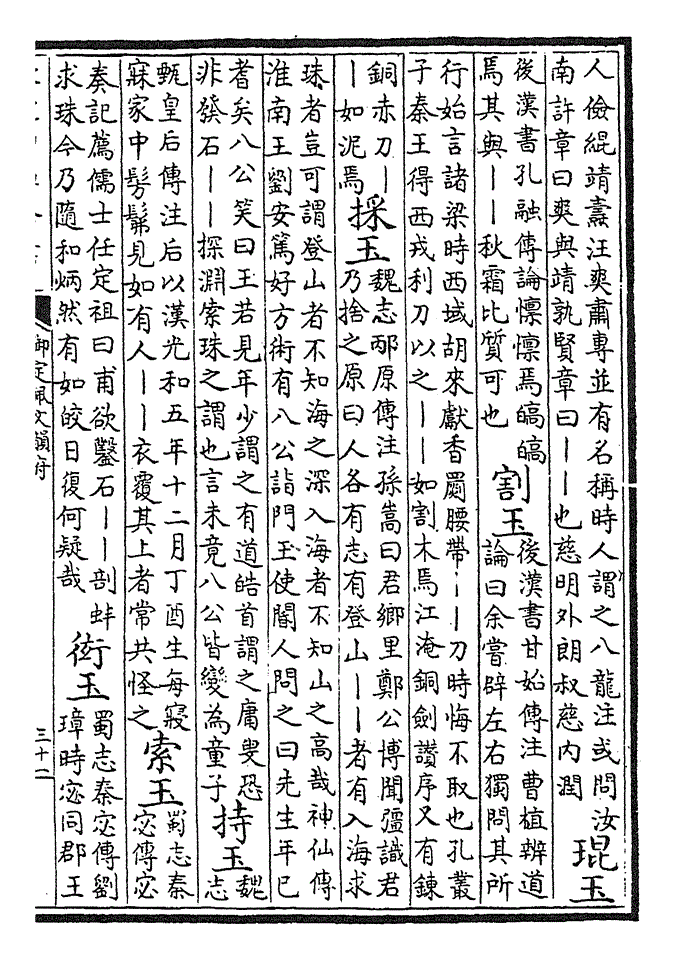 人儉緄靖燾汪爽肅專並有名稱時人謂之八龍注或問汝
南許章曰爽與靖孰賢章曰丨丨也慈明外朗叔慈内潤
琨玉
後漢書孔融傳論懍懍焉皜皜
焉其與丨丨秋霜比質可也
割玉
後漢書甘始傳注曹植辨道
論曰余嘗辟左右獨問其所
行始言諸梁時西域胡來獻香罽腰帶丨丨刀時悔不取也孔叢
子秦王得西戎利刀以之丨丨如割木焉江淹銅劍讚序又有鍊
銅赤刀丨
丨如泥焉
採玉
魏志邴原傳注孫嵩曰君鄉里鄭公博聞彊識君
乃捨之原曰人各有志有登山丨丨者有入海求
珠者豈可謂登山者不知海之深入海者不知山之高哉神仙傳
淮南王劉安篤好方術有八公詣門王使閽人問之曰先生年已
耆矣八公笑曰王若見年少謂之有道皓首謂之庸叟恐
非發石丨丨探淵索珠之謂也言未竟八公皆變為童子
持玉
魏
志
甄皇后傳注后以漢光和五年十二月丁酉生每寢
寐家中髣髴見如有人丨丨衣覆其上者常共怪之
索玉
蜀志秦
宓傳宓
奏記薦儒士任定祖曰甫欲鑿石丨丨剖蚌
求珠今乃隨和炳然有如皎日復何疑哉
衒玉
蜀志秦宓傳劉
璋時宓同郡王
御定佩文韻府
三十二